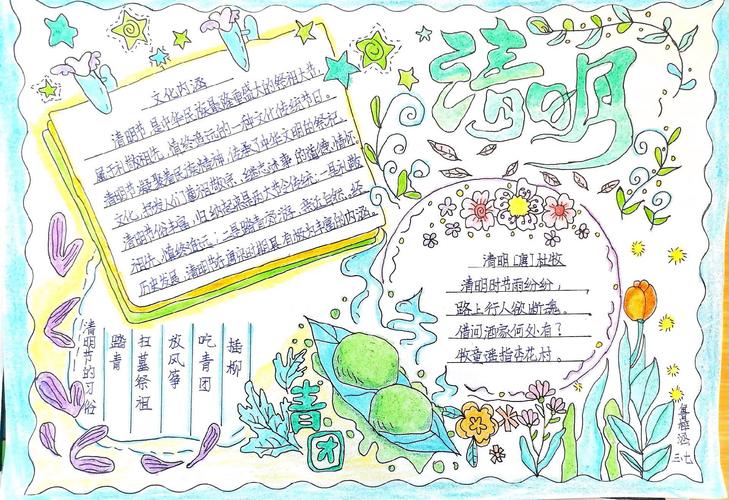 清明
文化内涵
清明节是中华民族最隆重盛大的祭祖大节,
属于礼敬祖先、慎终追远的一种文化传统节日。
清明节凝聚着民族精神,传承了中华文明的祭祀
文化,抒发人们尊祖敬宗、继志述事的道德情怀。
清明节俗丰富,归纳起来是两大节令传统:一是礼敬
祖先,慎终追远;二是踏青郊游、亲近自然。经
历史发展,清明节在唐宋时期具有极为丰富的内涵。
清明 [唐] 杜牧
清明时节雨纷纷,
路上行人欲断魂。
借问酒家何处有?
牧童遥指杏花村。
清明节的习俗
踏青
扫墓祭祖
放风筝
吃青团
插柳
青团
涵
三.七